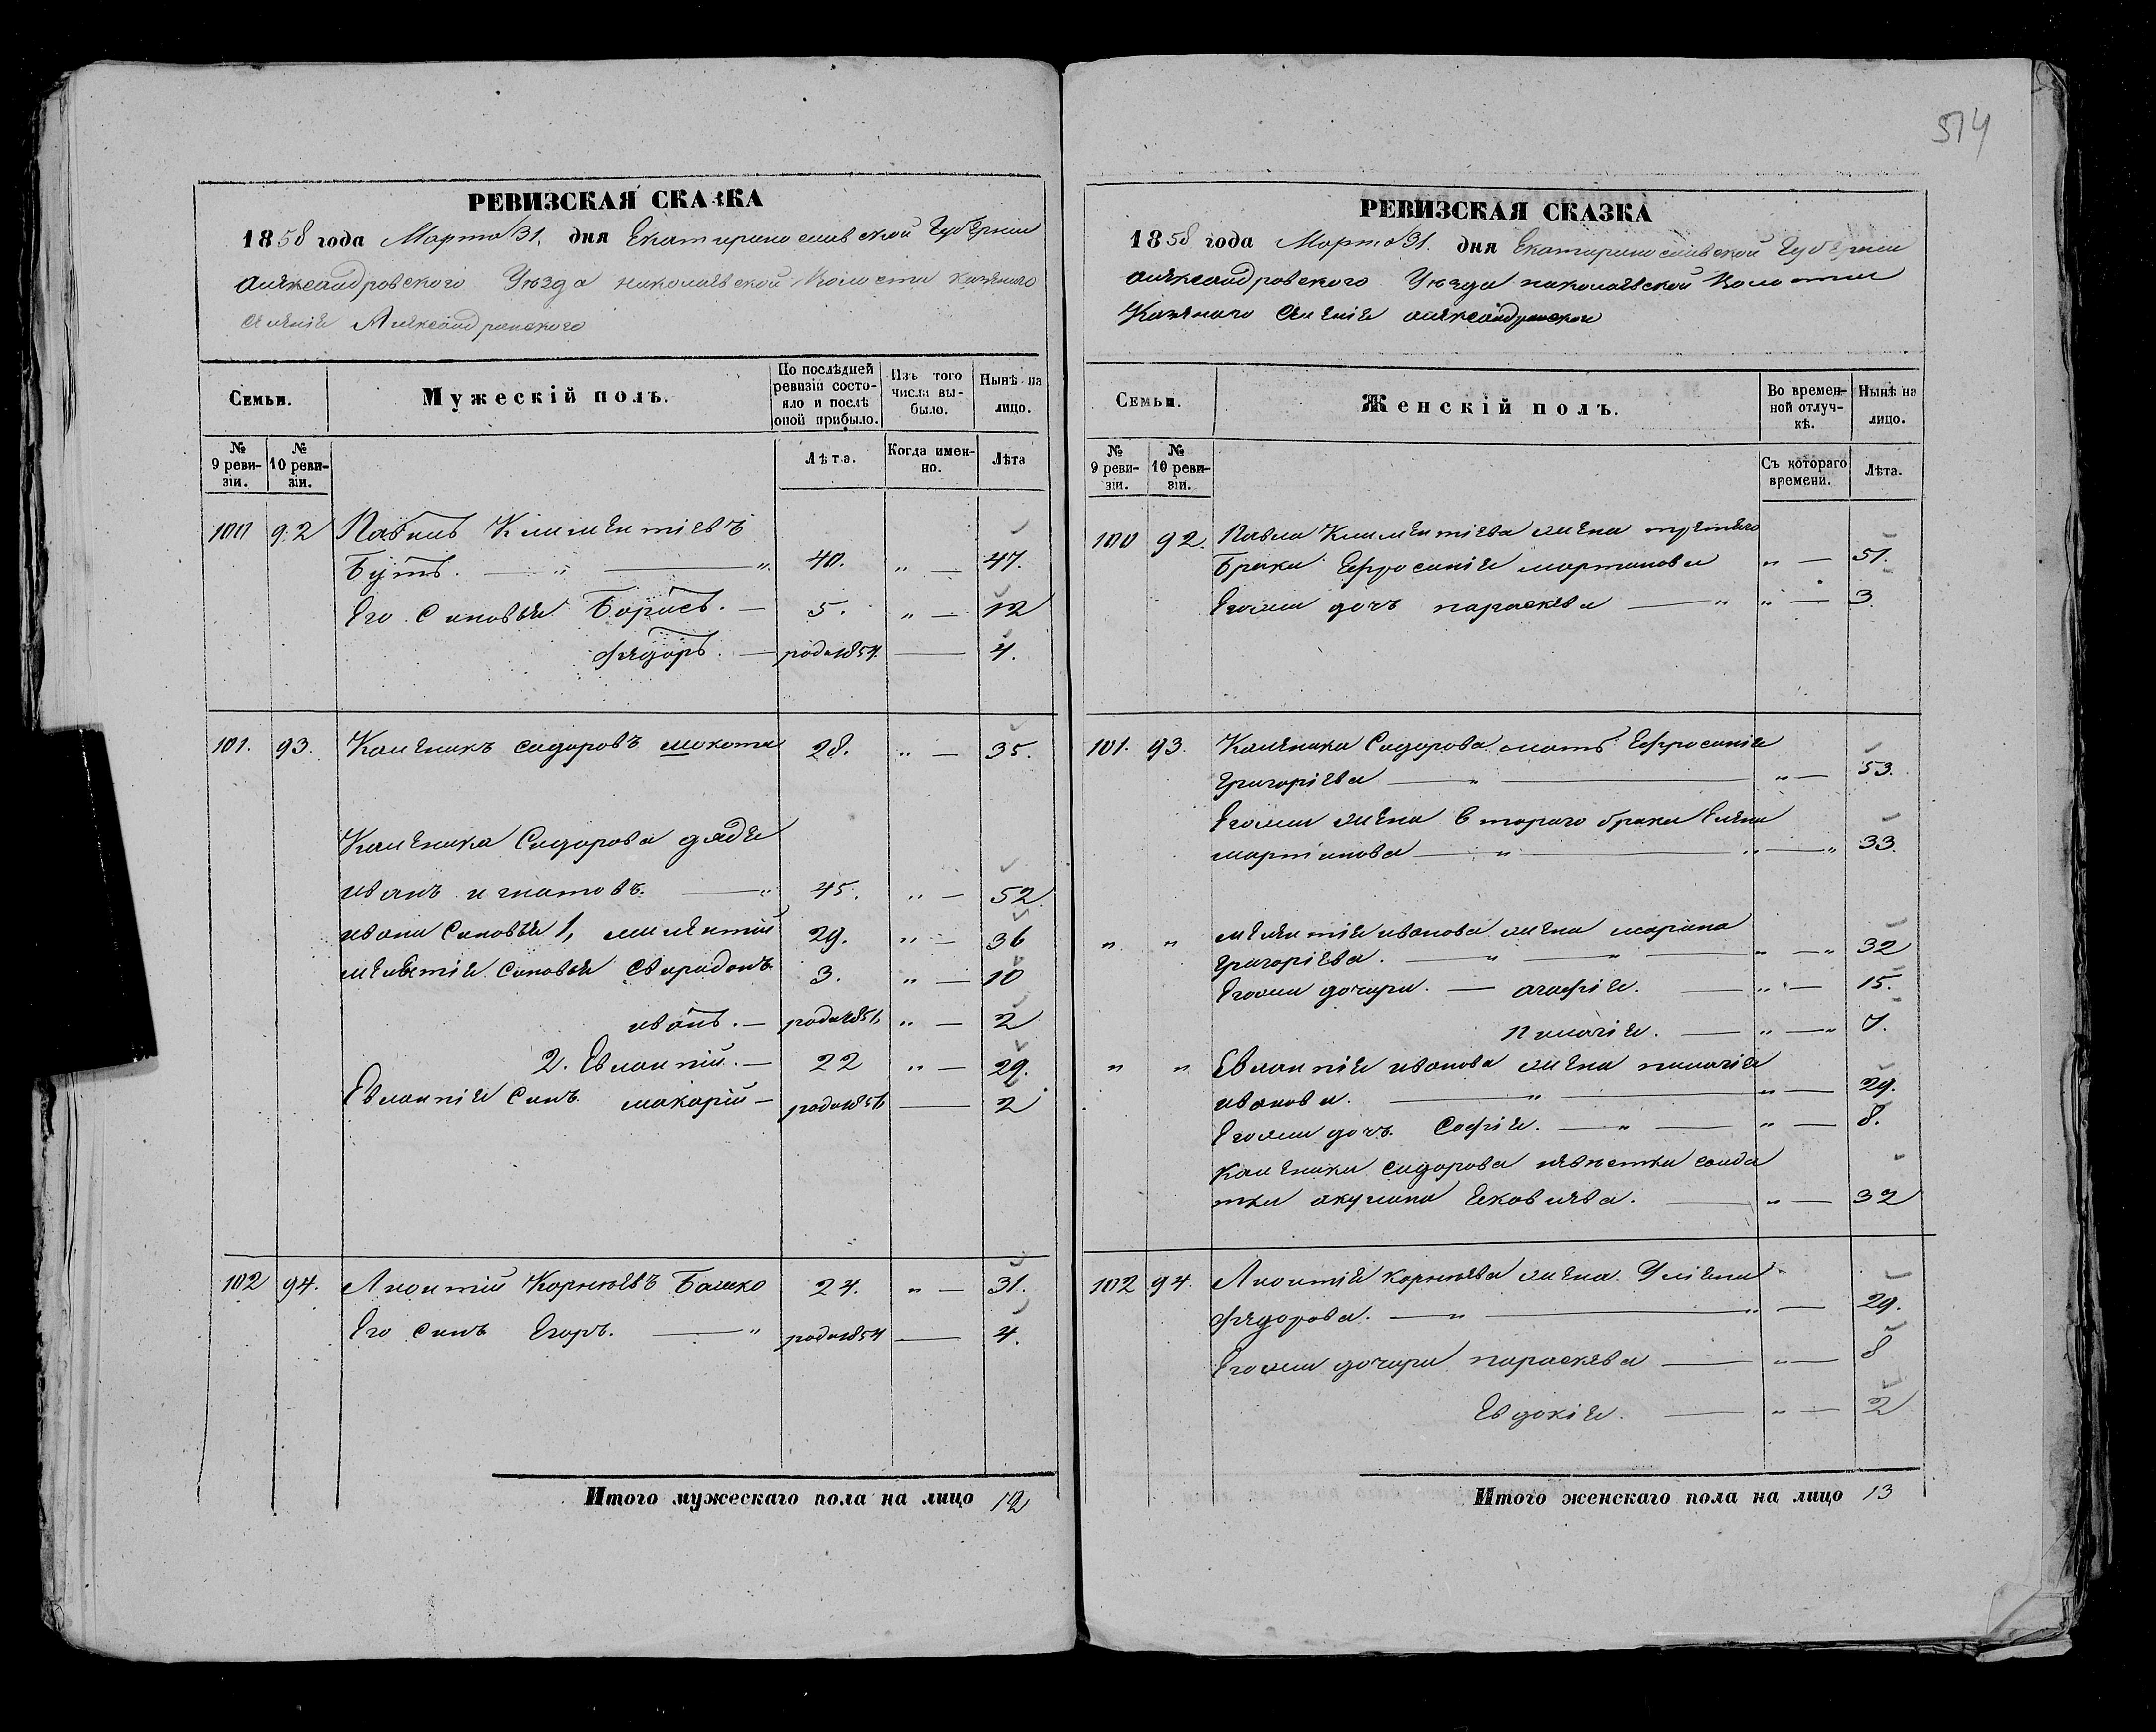 514
РЕВИЗСКАЯ СКАЗКА
1858 года Марта 31. дня Екатеринославской Губернии
Александровского Уезда николаевской Волости казенного
селения Александровского
Семьи. Мужескій полъ. По послѣдней ревизіи состояло и послѣ оной прибыло. Изъ того числа выбыло. Нынѣ на лицо.
№ 9 ревизіи. № 10 ревизіи. Лѣта. Когда именно. Лѣта
100 92 Павилъ Климентіевъ
Бутъ. — „ — „ 40. „ — 47.
Его Синовья Борисъ. — 5. „ — 12
Федоръ. — рода 1854. — 4.
101. 93. Каленикъ сидоровъ мокота 28. „ — 35.
Каленика Сидорова дядя
иванъ игнатовъ. — „ 45. „ — 52.
ивана Синовья 1, милентий 29. „ — 36
мелентія синовья Свиридонъ 3. „ — 10
иванъ. — рода 1856 „ — 2
2. Евлампій. — 22 „ — 29.
Евлампія Синъ макарій — рода 1856 — 2
102 94. Леонтій Корнеевъ Башко 24. „ — 31.
Его Синъ Егоръ. — „ рода 1854 — 4.
Итого мужескаго пола на лицо 12
РЕВИЗСКАЯ СКАЗКА
1858 года Марта 31. дня Екатеринославской Губернии
александровского Уезда николаевской Волости
Казенаго селения александровского
Семьи. Женскій полъ. Во временной отлучкѣ. Нынѣ на лицо.
№ 9 ревизіи. № 10 ревизіи. Съ котораго времени. Лѣта.
100 92. Павла Климентіева жена третего
Брака Ефросинія мартинова „ — 51.
Егоже дочъ параскева — „ „ — 3.
101. 93. Каленика Сидорова мать Ефросинія
григоріева — „ — „ — 53.
Егоже жена втораго брака Елена
мартинова — „ — „ — „ 33.
„ „ мелентія иванова жена марина
григоріева. — „ — „ — „ — „ 32
Егоже дочери. — агафія. — „ — 15.
пилагія. — „ — „ 7.
„ „ Евлампія иванова жена пилагія
иванова. — „ — „ — 29.
Егоже дочъ. Софія. — „ — „ — 8.
Каленика сидорова невестка салда
тка акулина Яковлева. — „ — 32
102 94. Леонтія корнеева жена. Улияна
федорова. — „ — „ — 29.
Егоже дочери параскева — „ — 8
Евдокія. — „ — 2
Итого женскаго пола на лицо 13